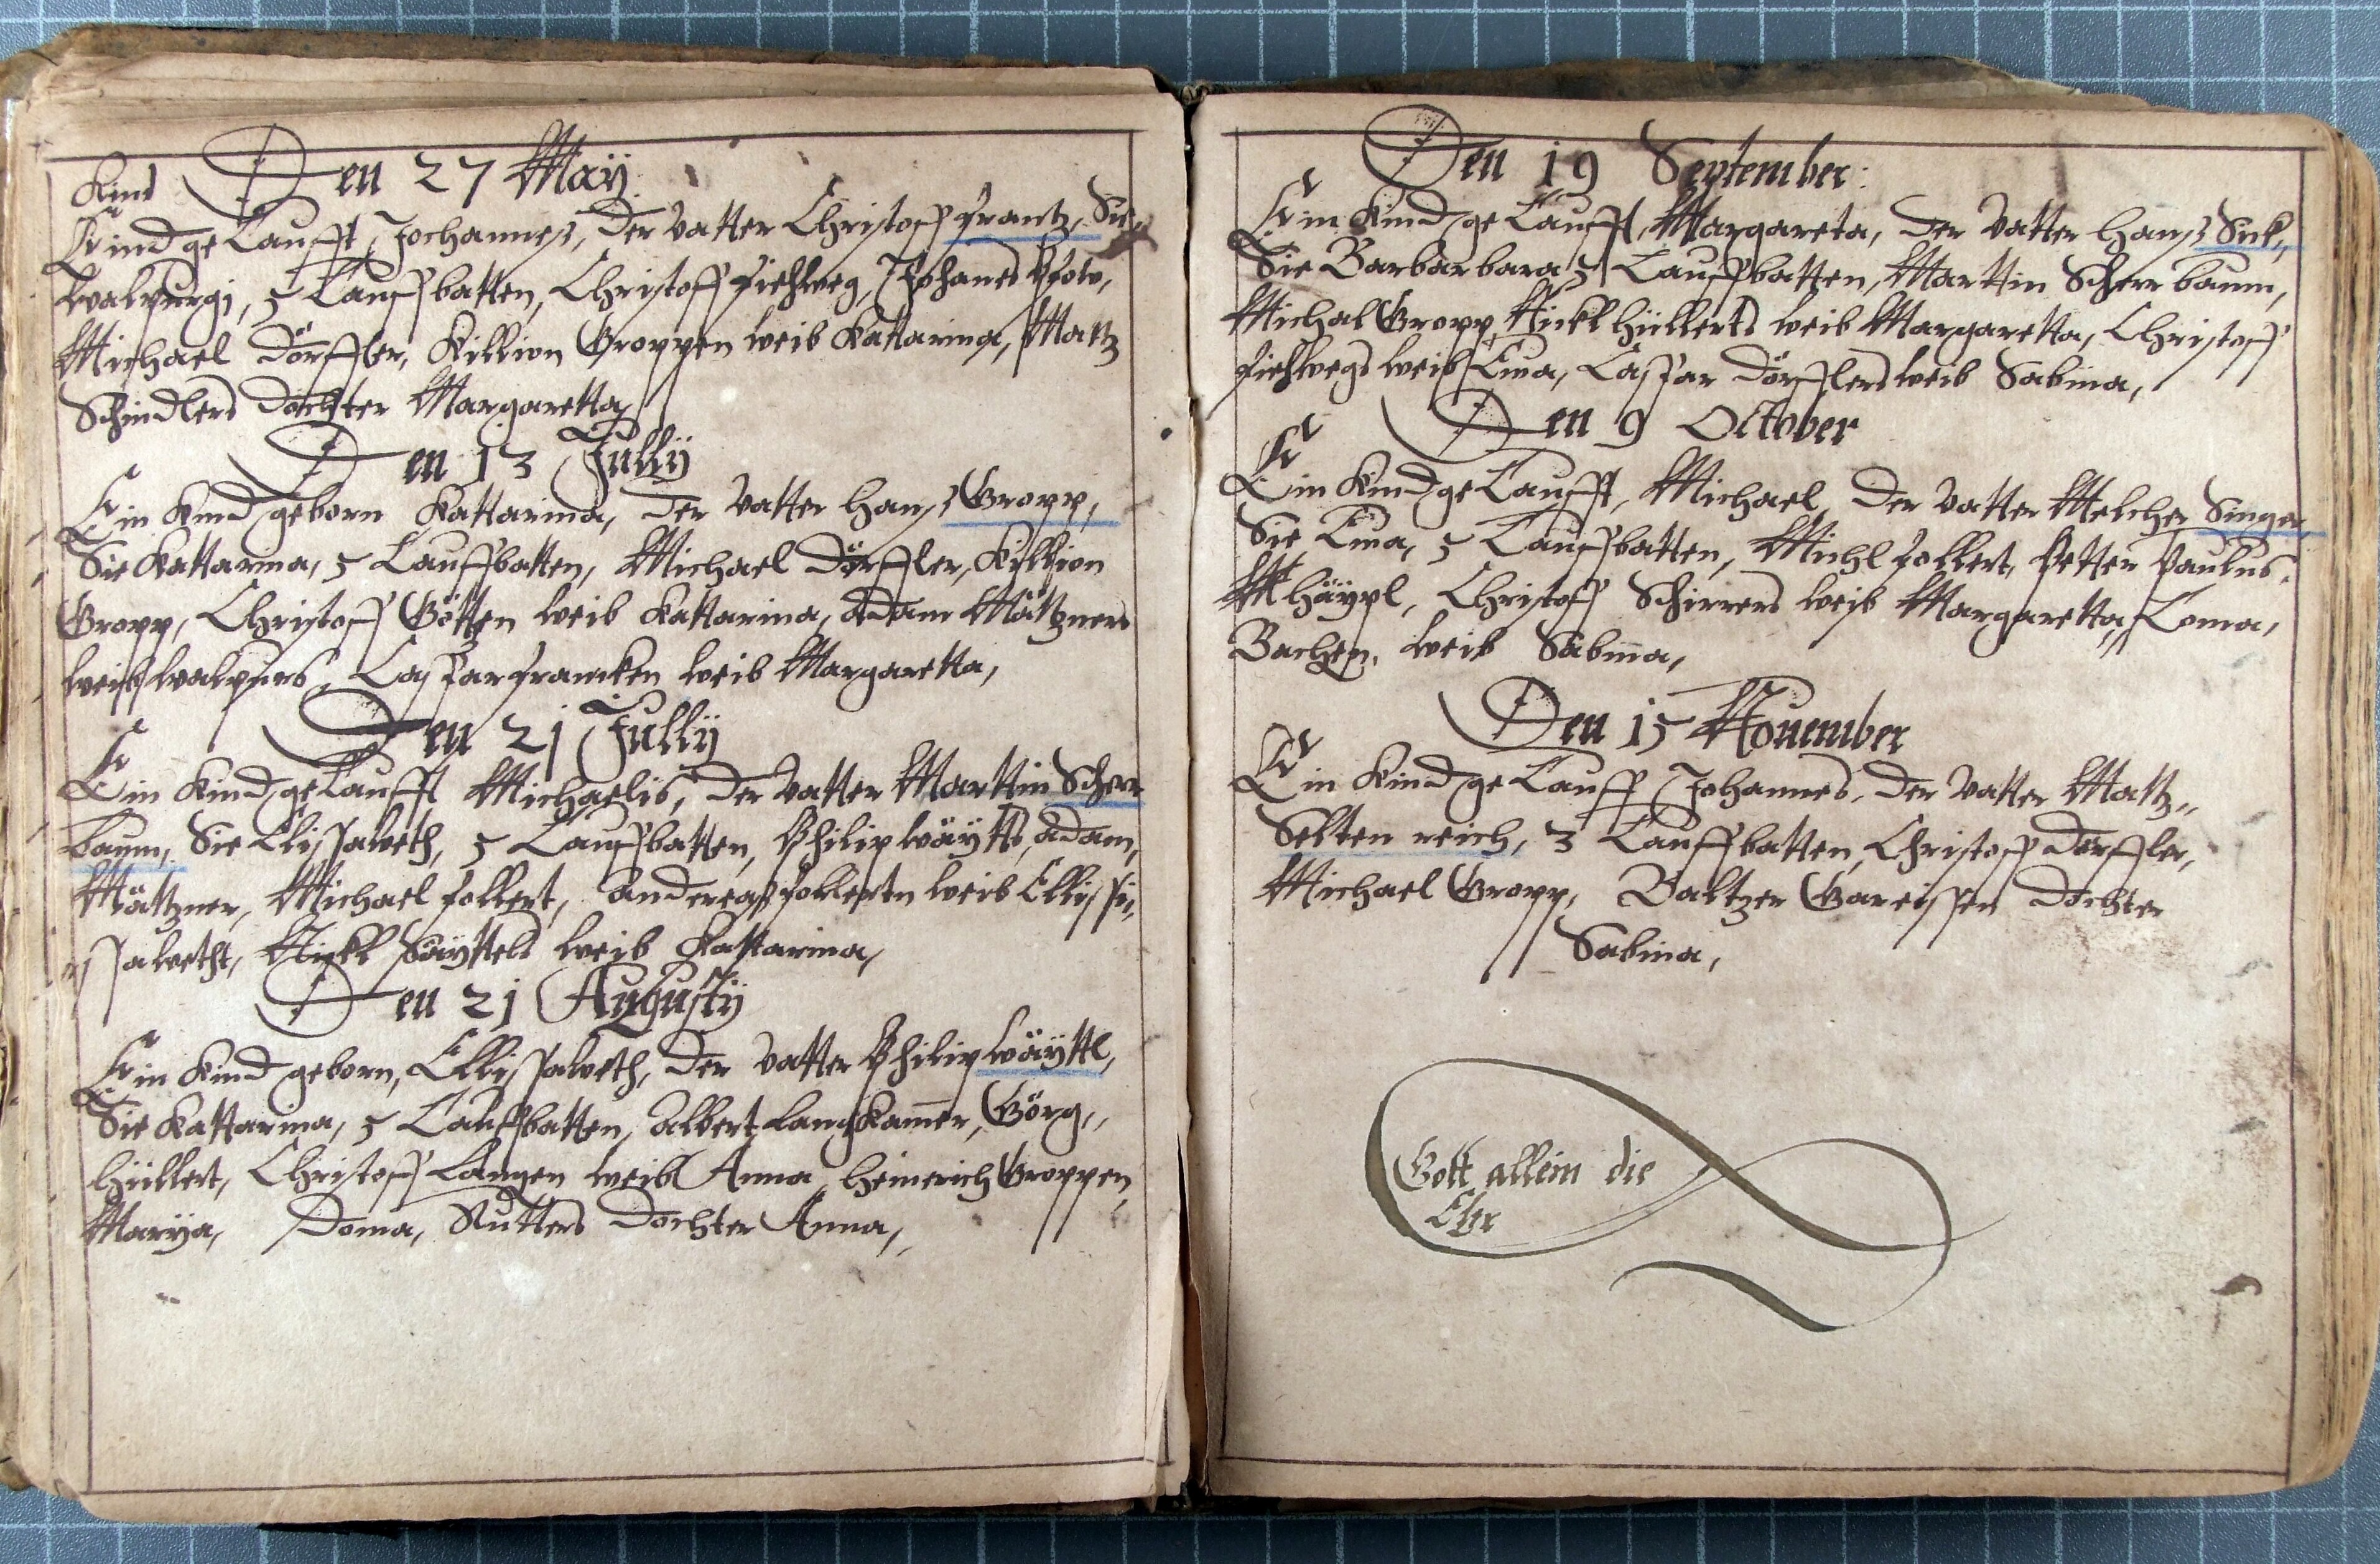 Kind
Den 27 Maÿ
Kind getaufft, Jochannes, der vatter Christoff Frantz, Sie,
Walpurgi, 5 Tauffbatten, Christoff Fiehweg, Johanes
Michael Dörffler, Killion Groppen weib Kattarina, Matz
Schindlers dochter Margaretta,
Den 13 Jullÿ
Ein Kind geborn Kattarina, der vatter hanß Gropp,
Sie Kattarina, 5 Tauffbatten, Michael Dörffler, Killion
Gropp, Christoff Götzen weib Kattarina, Adam Mätzners
weib walpurs, Casparfrancken weib Margaretta,
Den 21 Jullÿ
Ein Kind getaufft Michaelis, der vatter Marttin Scherr
baum, Sie Ellisaweth, 5 Tauffbatten, Philip Adam,
Mätzner, Michael follert, Andereas follertn weib Ellisi,
saweth, Nickl weib Kattarina,
Den 21 Augustÿ
Ein Kind geborn, Ellisaweth, der vatter Philip wäÿttl,
Sie Kattarina, 5 Tauffbatten, Albert Langkamer, Görg,,
hüllert, Christoff Langen weib Anna, heinerich Groppen
Marÿa, Doma, Rutters dochter Anna,
Den 19 September:
Ein Kind getaufft, Margareta, der vatter hanß Sick,
Sie Barbarbara 5 Tauffbatten, Marttin Scherr baum,
Michal Gropp, Nickl hüllerts weib Margaretta, Christoff
fiehwegs weib Eva, Caspar Dörfflers weib Sabina,
Den 9 October
Ein Kind getaufft, Michael, der vatter Melcher Singer,
Sie Eva, 5 Tauffbatten, Michl follert, Petter Paulus,
häÿpl, Christoff Schirrers weib Margaretta, Toma,
Bachen, weib Sabina,
Den 15 Nouember
Ein Kind getauff Johannes, der vatter Mattz,,
Selten reich, 3 Tauffbatten, Christoff Dörffler,
Michael Gropp, Baltzer Gareissen dochter
Sabina,
Gott allein die
Ehr